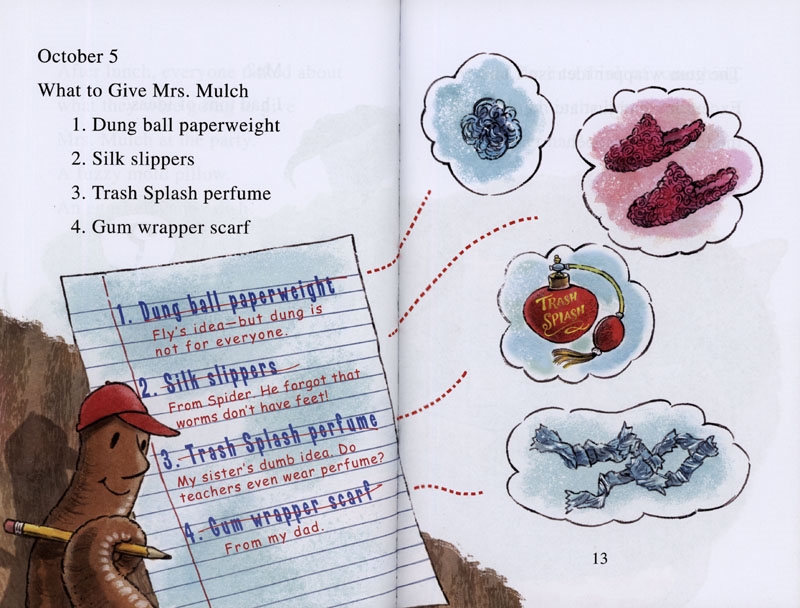 October 5
What to Give Mrs. Mulch
1. Dung ball paperweight
2. Silk slippers
3. Trash Splash perfume
4. Gum wrapper scarf
1. Dung ball paperweight
Fly's idea—but dung is
not for everyone.
2. Silk slippers
From Spider. He forgot that
worms don't have feet!
3. Trash Splash perfume
My sister's dumb idea. Do
teachers even wear perfume?
4. Gum wrapper scarf
From my dad.
TRASH
SPLASH
13